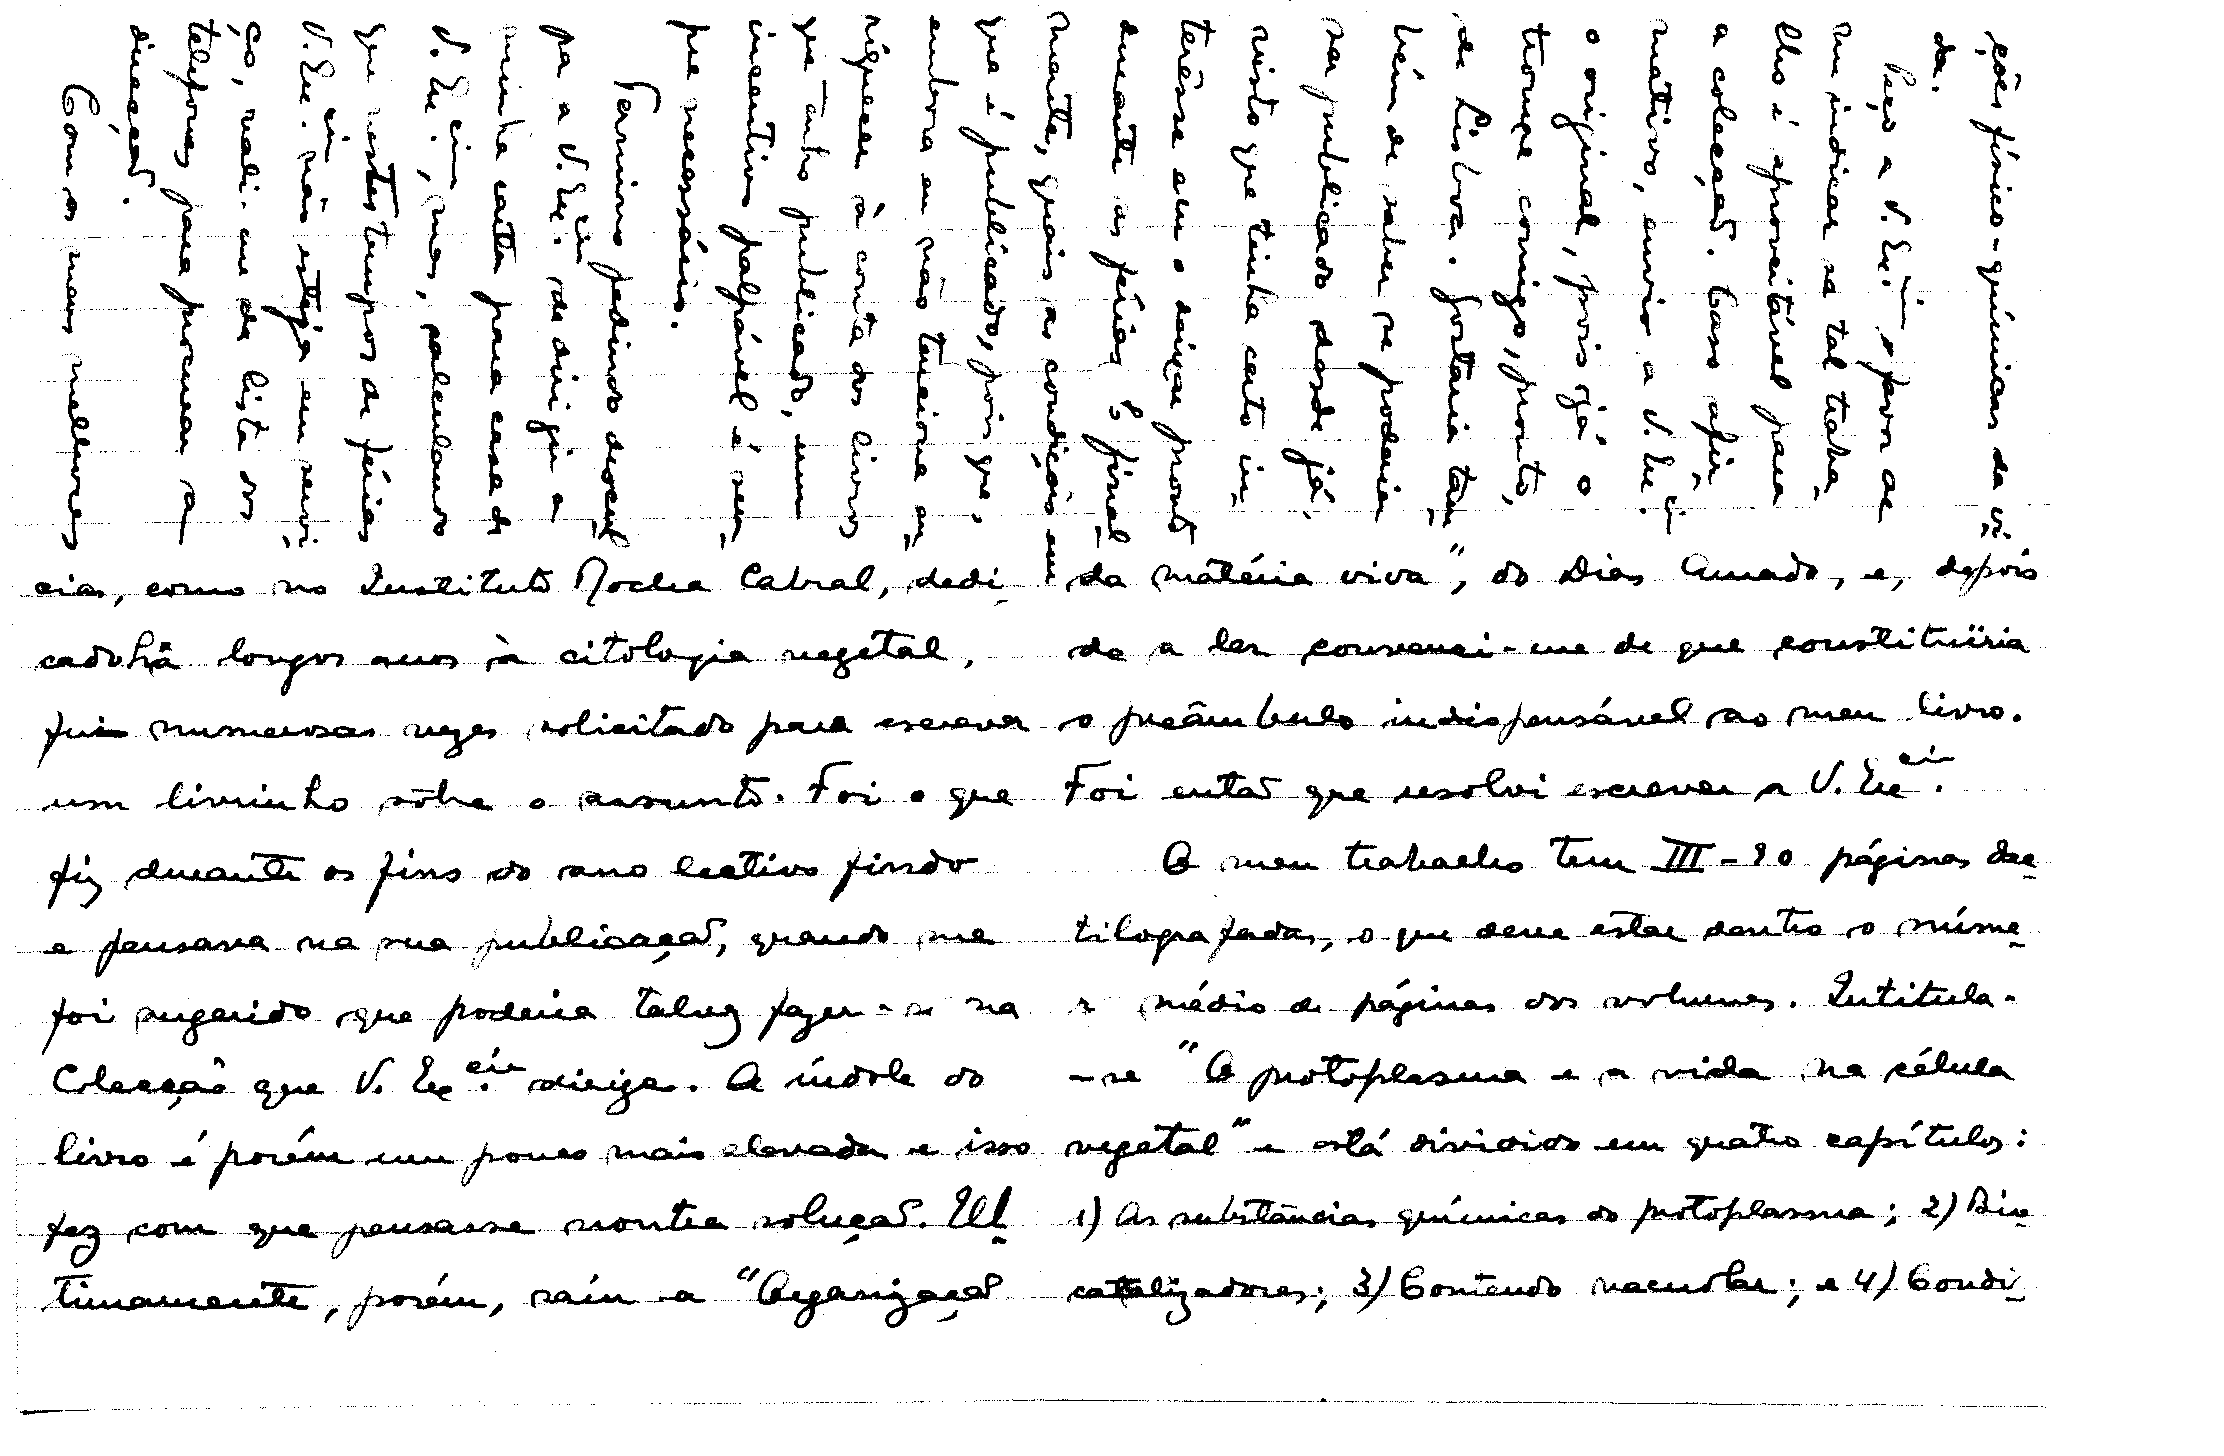 cias, como no Instituto Rocha Cabral, dedi-
cado há longos anos à citologia vegetal,
fui numerosas vezes solicitado para escrever
um livrinho sôbre o assunto. Foi o que
fiz durante os fins do ano lectivo findo
e pensava na sua publicação, quando me
foi sugerido que poderia talvez fazer-se na
Colecção que V. Ex.cia dirige. A índole do
livro é porém um pouco mais elevada e isso
fez com que pensasse noutra solução. Ul-
timamente, porém, saíu a "Organização
da matéria viva", do Dias Amado, e, depois
de a ler convenci-me de que constituïria
o preâmbulo indispensável ao meu livro.
Foi então que resolvi escrever a V. Ex.cia
O meu trabalho tem III-90 páginas dac-
tilografadas, o que deve estar dentro o núme-
r médio de páginas dos volumes. Intitula-
-se "O protoplasma e a vida na célula
vegetal" e está dividido em quatro capítulos:
1) As substâncias químicas do protoplasma; 2) Bio-
catalizadores; 3) Conteudo vacuolar; e 4) Condi-
ções físico-químicas da vi-
da.
Peço a V. Ex.cia o favor de
me indicar se tal traba-
lho é aproveitável para
a colecção. Caso afir-
mativo, envio a V. Ex.cia
o original, pois já o
trouxe comigo, pronto,
de Lisboa. Gostaria tam-
bém de saber se poderia
ser publicado desde já,
visto que tinha certo in-
terêsse em o deixar pronto
durante as férias. E final-
mente, quais as condições em
que é publicado, pois que,
embora eu não tencione en-
riquecer à conta dos livros
que tenho publicado, um
incentivo palpável é sem-
pre necessário.
Termino pedindo descul-
pa a V. Ex.cia de dirigir a
minha carta para casa de
V. Ex.cia, mas, calculando
que nestes tempos de férias
V. Ex.cia não esteja em servi-
ço, vali-me da lista dos
telefones para procurar a
direcção.
Com os meus melhores